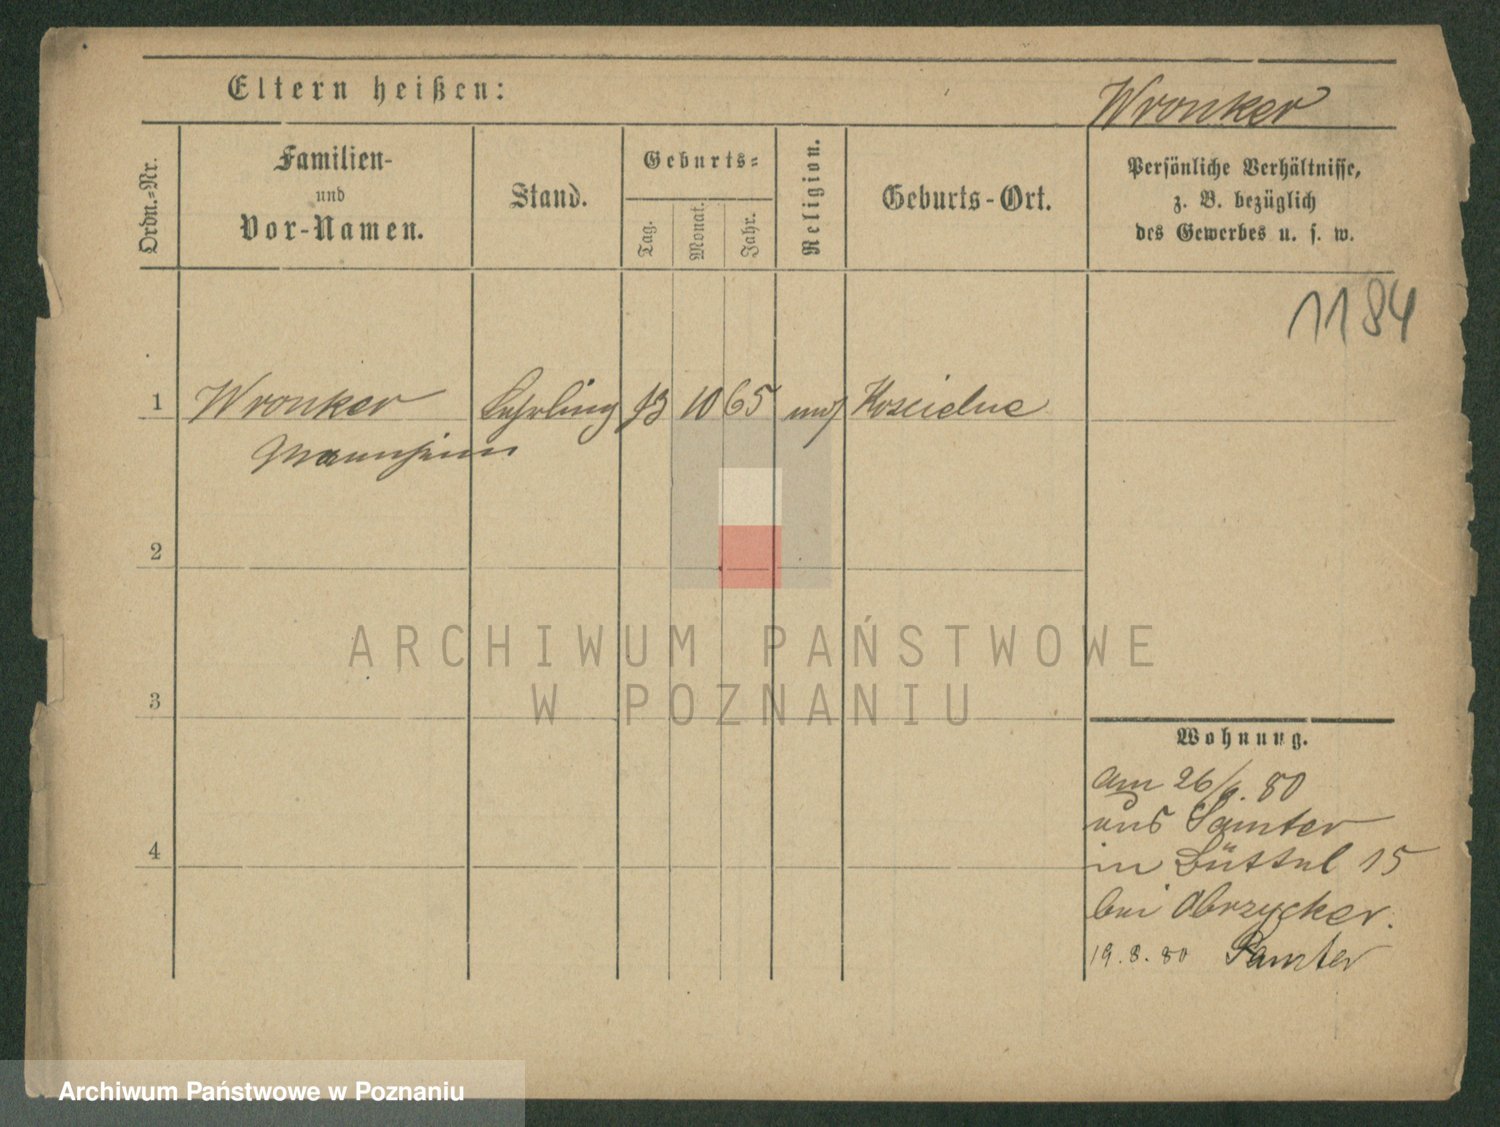 Eltern heißen:
Wronker
Ordn.-Nr.
Familien-
und
Vor-Namen.
Stand.
Geburts-
Tag.
Monat.
Jahr.
Religion.
Geburts-Ort.
Persönliche Verhältnisse,
z. B. bezüglich
des Gewerbes u. s. w.
1184
1 Wronker Lehrling 13 10 65 mos Koscielne
Mannheim
2
3
4
ARCHIWUM PAŃSTWOWE
W POZNANIU
Wohnung.
am 26/ . 80
aus Samter
in Büttel 15
bei Obrzycker.
19. 8. 80 Samter
Archiwum Państwowe w Poznaniu